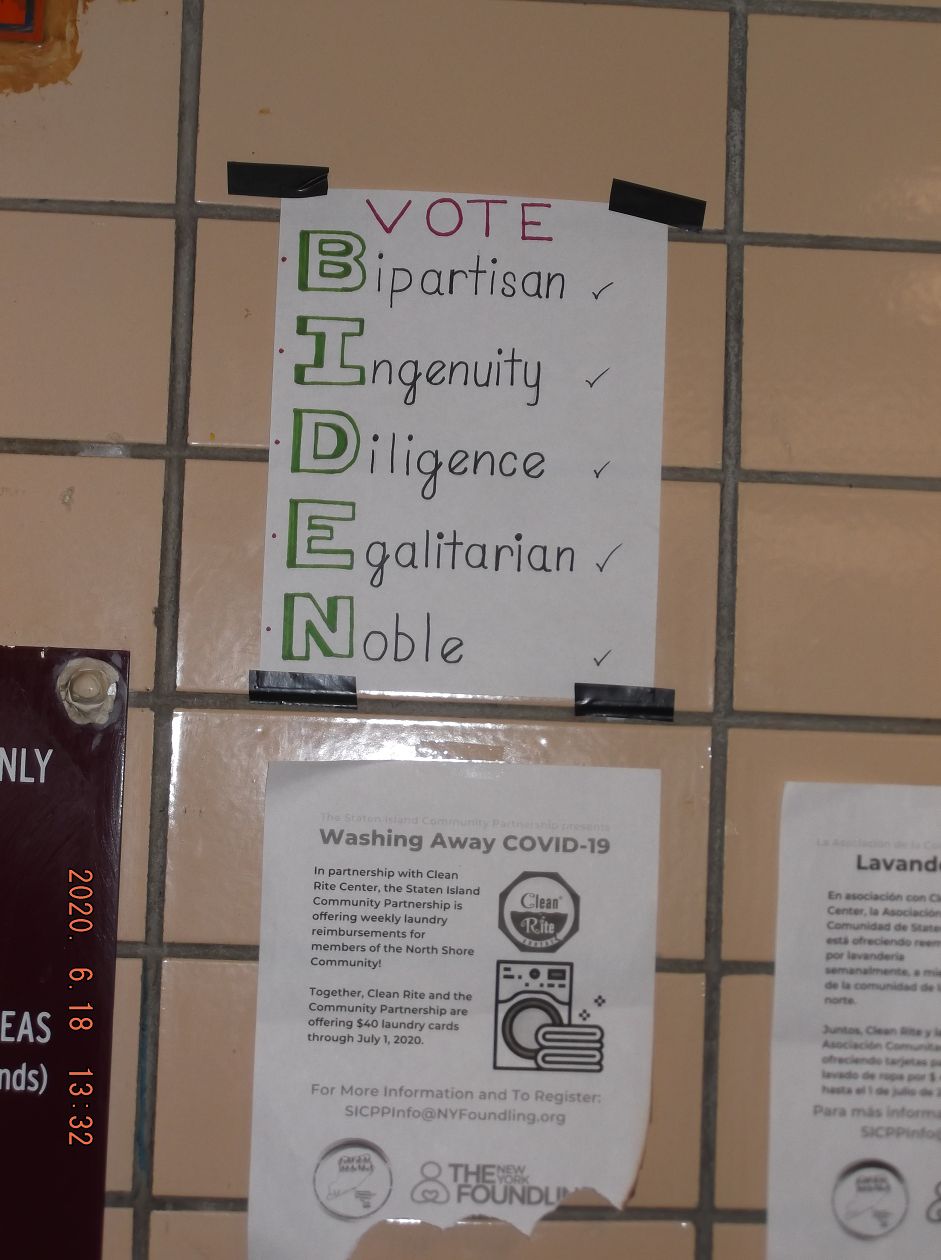 VOTE
Bipartisan ✓
Ingenuity ✓
Diligence ✓
Egalitarian ✓
Noble ✓
NLY
EAS
nds)
2020. 6. 18 13:32
The Staten Island Community Partnership presents
Washing Away COVID-19
In partnership with Clean
Rite Center, the Staten Island
Community Partnership is
offering weekly laundry
reimbursements for
members of the North Shore
Community!
Clean
Rite
Together, Clean Rite and the
Community Partnership are
offering $40 laundry cards
through July 1, 2020.
For More Information and To Register:
SICPPInfo@NYFoundling.org
THE NEW YORK
FOUNDLIN
La Asociación de la Co
Lavand
En asociación con Cl
Center, la Asociación
Comunidad de State
está ofreciendo reem
por lavandería
semanalmente, a mi
de la comunidad de l
norte.
Juntos, Clean Rite y l
Asociación Comunita
ofreciendo tarjetas p
lavado de ropa por $
hasta el 1 de julio de 2
Para más informa
SICPPinfo